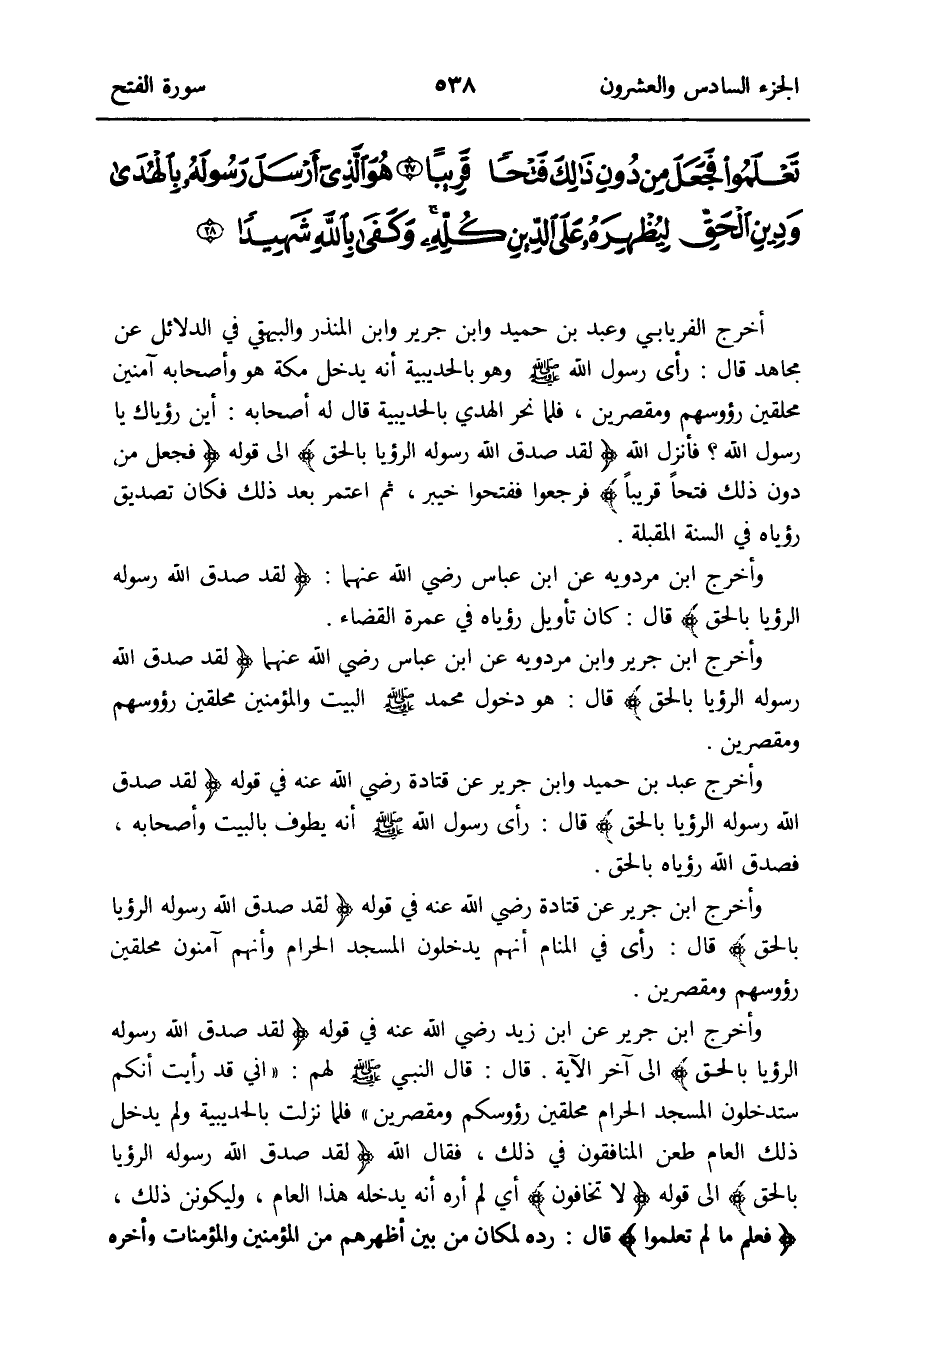 الجزء السادس والعشرون ٥٣٨ سورة الفتح
تَعْلَمُوا۟ فَجَعَلَ مِن دُونِ ذَٰلِكَ فَتْحًا قَرِيبًا ۝٢٧ هُوَ ٱلَّذِىٓ أَرْسَلَ رَسُولَهُۥ بِٱلْهُدَىٰ
وَدِينِ ٱلْحَقِّ لِيُظْهِرَهُۥ عَلَى ٱلدِّينِ كُلِّهِۦ ۚ وَكَفَىٰ بِٱللَّهِ شَهِيدًا ۝٢٨
أخرج الفريابي وعبد بن حميد وابن جرير وابن المنذر والبيهقي في الدلائل عن
مجاهد قال : رأى رسول الله ﷺ وهو بالحديبية أنه يدخل مكة هو وأصحابه آمنين
محلقين رؤوسهم ومقصرين ، فلما نحر الهدي بالحديبية قال له أصحابه : أين رؤياك يا
رسول الله ؟ فأنزل الله ﴿ لقد صدق الله رسوله الرؤيا بالحق ﴾ الى قوله ﴿ فجعل من
دون ذلك فتحاً قريباً ﴾ فرجعوا ففتحوا خيبر ، ثم اعتمر بعد ذلك فكان تصديق
رؤياه في السنة المقبلة .
وأخرج ابن مردويه عن ابن عباس رضي الله عنهما : ﴿ لقد صدق الله رسوله
الرؤيا بالحق ﴾ قال : كان تأويل رؤياه في عمرة القضاء .
وأخرج ابن جرير وابن مردويه عن ابن عباس رضي الله عنهما ﴿ لقد صدق الله
رسوله الرؤيا بالحق ﴾ قال : هو دخول محمد ﷺ البيت والمؤمنين محلقين رؤوسهم
ومقصرين .
وأخرج عبد بن حميد وابن جرير عن قتادة رضي الله عنه في قوله ﴿ لقد صدق
الله رسوله الرؤيا بالحق ﴾ قال : رأى رسول الله ﷺ أنه يطوف بالبيت وأصحابه ،
فصدق الله رؤياه بالحق .
وأخرج ابن جرير عن قتادة رضي الله عنه في قوله ﴿ لقد صدق الله رسوله الرؤيا
بالحق ﴾ قال : رأى في المنام أنهم يدخلون المسجد الحرام وأنهم آمنون محلقين
رؤوسهم ومقصرين .
وأخرج ابن جرير عن ابن زيد رضي الله عنه في قوله ﴿ لقد صدق الله رسوله
الرؤيا بالحق ﴾ الى آخر الآية . قال : قال النبي ﷺ لهم : « اني قد رأيت أنكم
ستدخلون المسجد الحرام محلقين رؤوسكم ومقصرين » فلما نزلت بالحديبية ولم يدخل
ذلك العام طعن المنافقون في ذلك ، فقال الله ﴿ لقد صدق الله رسوله الرؤيا
بالحق ﴾ الى قوله ﴿ لا تخافون ﴾ أي لم أره أنه يدخله هذا العام ، وليكونن ذلك ،
﴿ فعلم ما لم تعلموا ﴾ قال : رده لمكان من بين أظهرهم من المؤمنين والمؤمنات وأخره